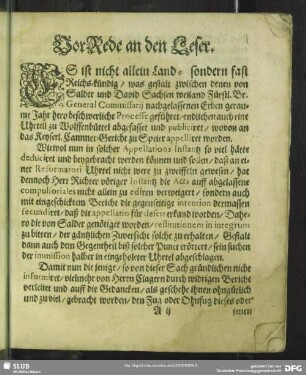 VorRede an den Leser.
ES ist nicht allein Land- sondern fast
Reichs-kündig / was gestalt zwischen denen von
Salder und David Sachsen weiland Fürstl. Br.
General Commissarij nachgelassenen Erben gerau-
me Jahr hero beschwerliche Processe geführet / endlichen auch eine
Uhrteil zu Wolffenbüttel abgefasset und publiciret / wovon an
das Keyserl. Cammer-Gericht zu Speier appelliret worden.
Wievol nun in solcher Appellations Instantz so viel hätte
deduciret und beygebracht werden können und sollen / daß an ei-
ner Reformatori Uhrteil nicht were zu zweiffeln gewesen / hat
dennoch Herr Richter voriger Instantz die Acta auff abgelassene
compulsoriales nicht allein zu ediren verweigert / sondern auch
mit eingeschicktem Bericht die gegenseitige intention dermassen
secundiret / daß die appellatio für desert erkand worden / Dahe-
ro die von Salder genötiget worden / restitutionem in integrum
zu bitten / der gäntzlichen Zuversicht solche zu erhalten / Gestalt
dann auch dem Gegentheil biß solcher Punct erörtert / sein suchen
der immission halber in eingeholeter Uhrtel abgeschlagen.
Damit nun die jenige / so von dieser Sach gründlichen nicht
informiret / vielmehr von Herrn Clagern durch widrigen Bericht
verleitet und auff die Gedancken / als geschehe ihnen ohngütlich
und zu viel / gebracht worden / den Fug oder Ohnfug dieses oder
A ij jenen
SLUB
Wir führen Wissen.
gefördert von der
Deutschen Forschungsgemeinschaft
DFG